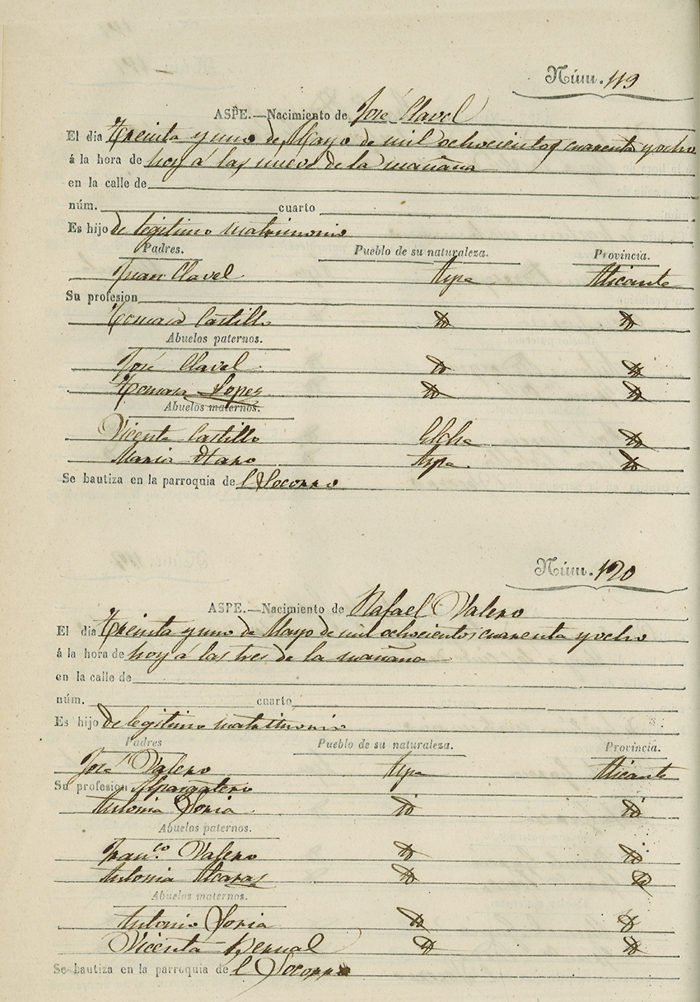 Núm. 119
ASPE.—Nacimiento de José Clavel
El dia treinta y uno de Mayo de mil ochocientos cuarenta y ocho
á la hora de hoy á las nueve de la mañana
en la calle de
núm. cuarto
Es hijo de legitimo matrimonio
Padres. Pueblo de su naturaleza. Provincia.
Juan Clavel Aspe Alicante
Su profesion
Tomasa Castillo id id
Abuelos paternos.
José Clavel id id
Tomasa Lopez id id
Abuelos maternos.
Vicente Castillo Elche id
Maria Aspe id
Se bautiza en la parroquia de l Socorro
Núm. 120
ASPE.—Nacimiento de Rafael Valero
El dia treinta y uno de Mayo de mil ochocientos cuarenta y ocho
á la hora de hoy á las tres de la mañana
en la calle de
núm. cuarto
Es hijo de legitimo matrimonio
Padres Pueblo de su naturaleza. Provincia.
José Valero Aspe Alicante
Su profesion Alpargatero
Antonia Soria id id
Abuelos paternos.
Fran.co Valero id id
Antonia Alcaraz id id
Abuelos maternos.
Antonio Soria id id
Vicenta Bernal id id
Se bautiza en la parroquia de l Socorro